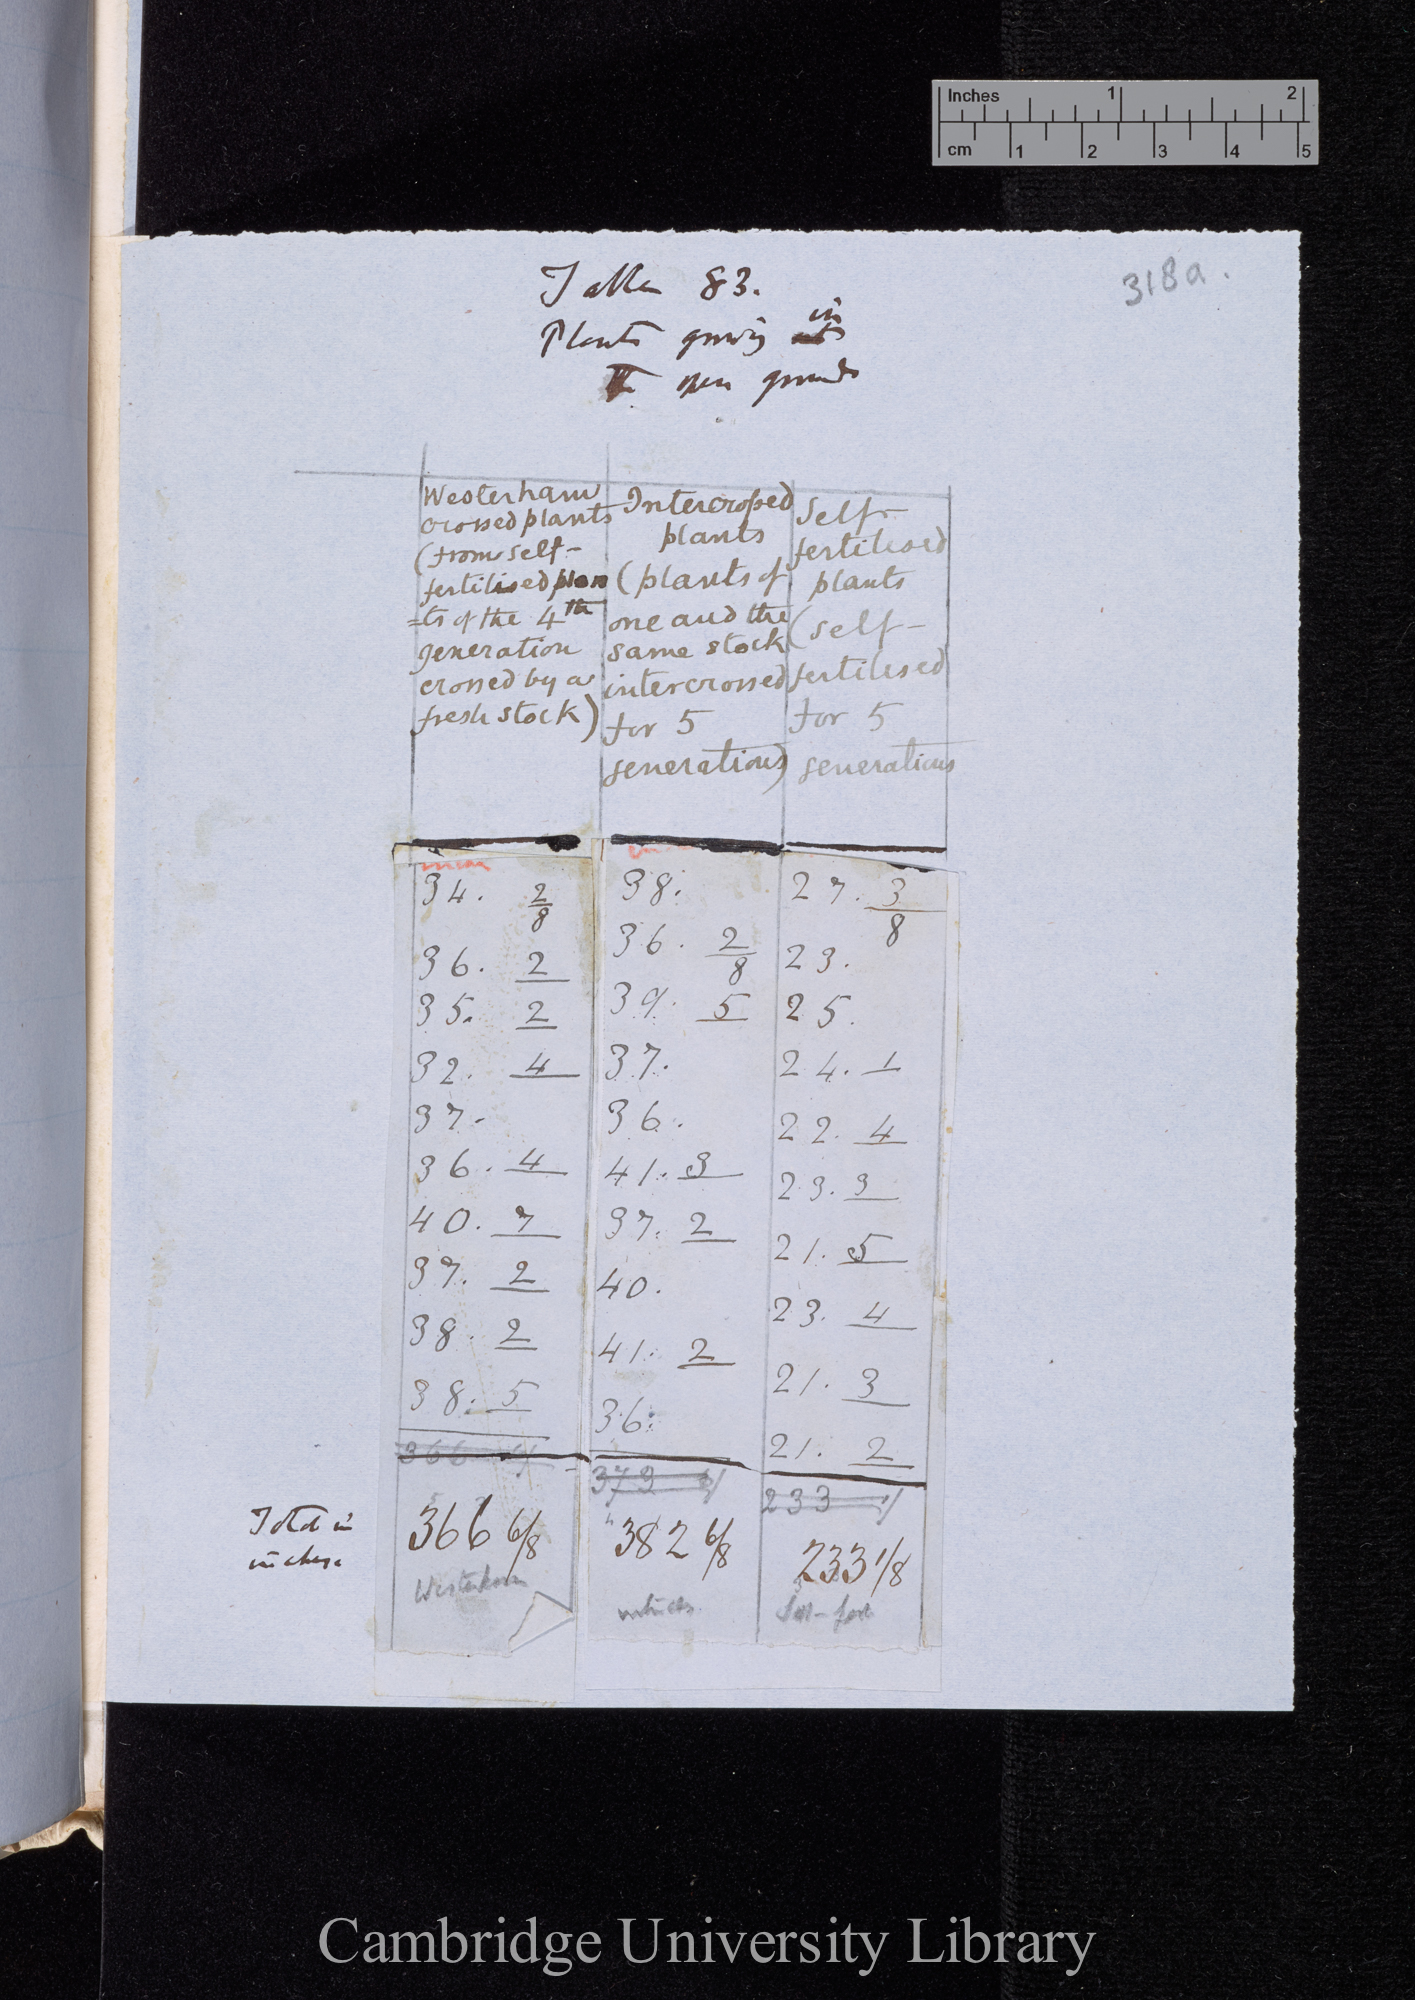 Inches 1 2
cm 1 2 3 4 5
318a.
Table 83.
Plants growing in
the open ground
Westerham
crossed plants
(from self-
fertilised plan
=ts of the 4th
generation
crossed by a
fresh stock)
Intercrossed
plants
(plants of
one and the
same stock
intercrossed
for 5
generations)
Self-
fertilised
plants
(self-
fertilised
for 5
generations
34. 2/8
36. 2
35. 2
32. 4
37.
36. 4
40. 7
37. 2
38. 2
38. 5
366 6/
38.
36. 2/8
39. 5
37.
36.
41. 3
37. 2
40.
41. 2
36.
373
27. 3/8
23.
25.
24. 1
22. 4
23. 3
21. 5
23. 4
21. 3
21. 2
233 1/
Total in
inches.
366 6/8
382 6/8
233 1/8
Westerham
Self-fert
Cambridge University Library